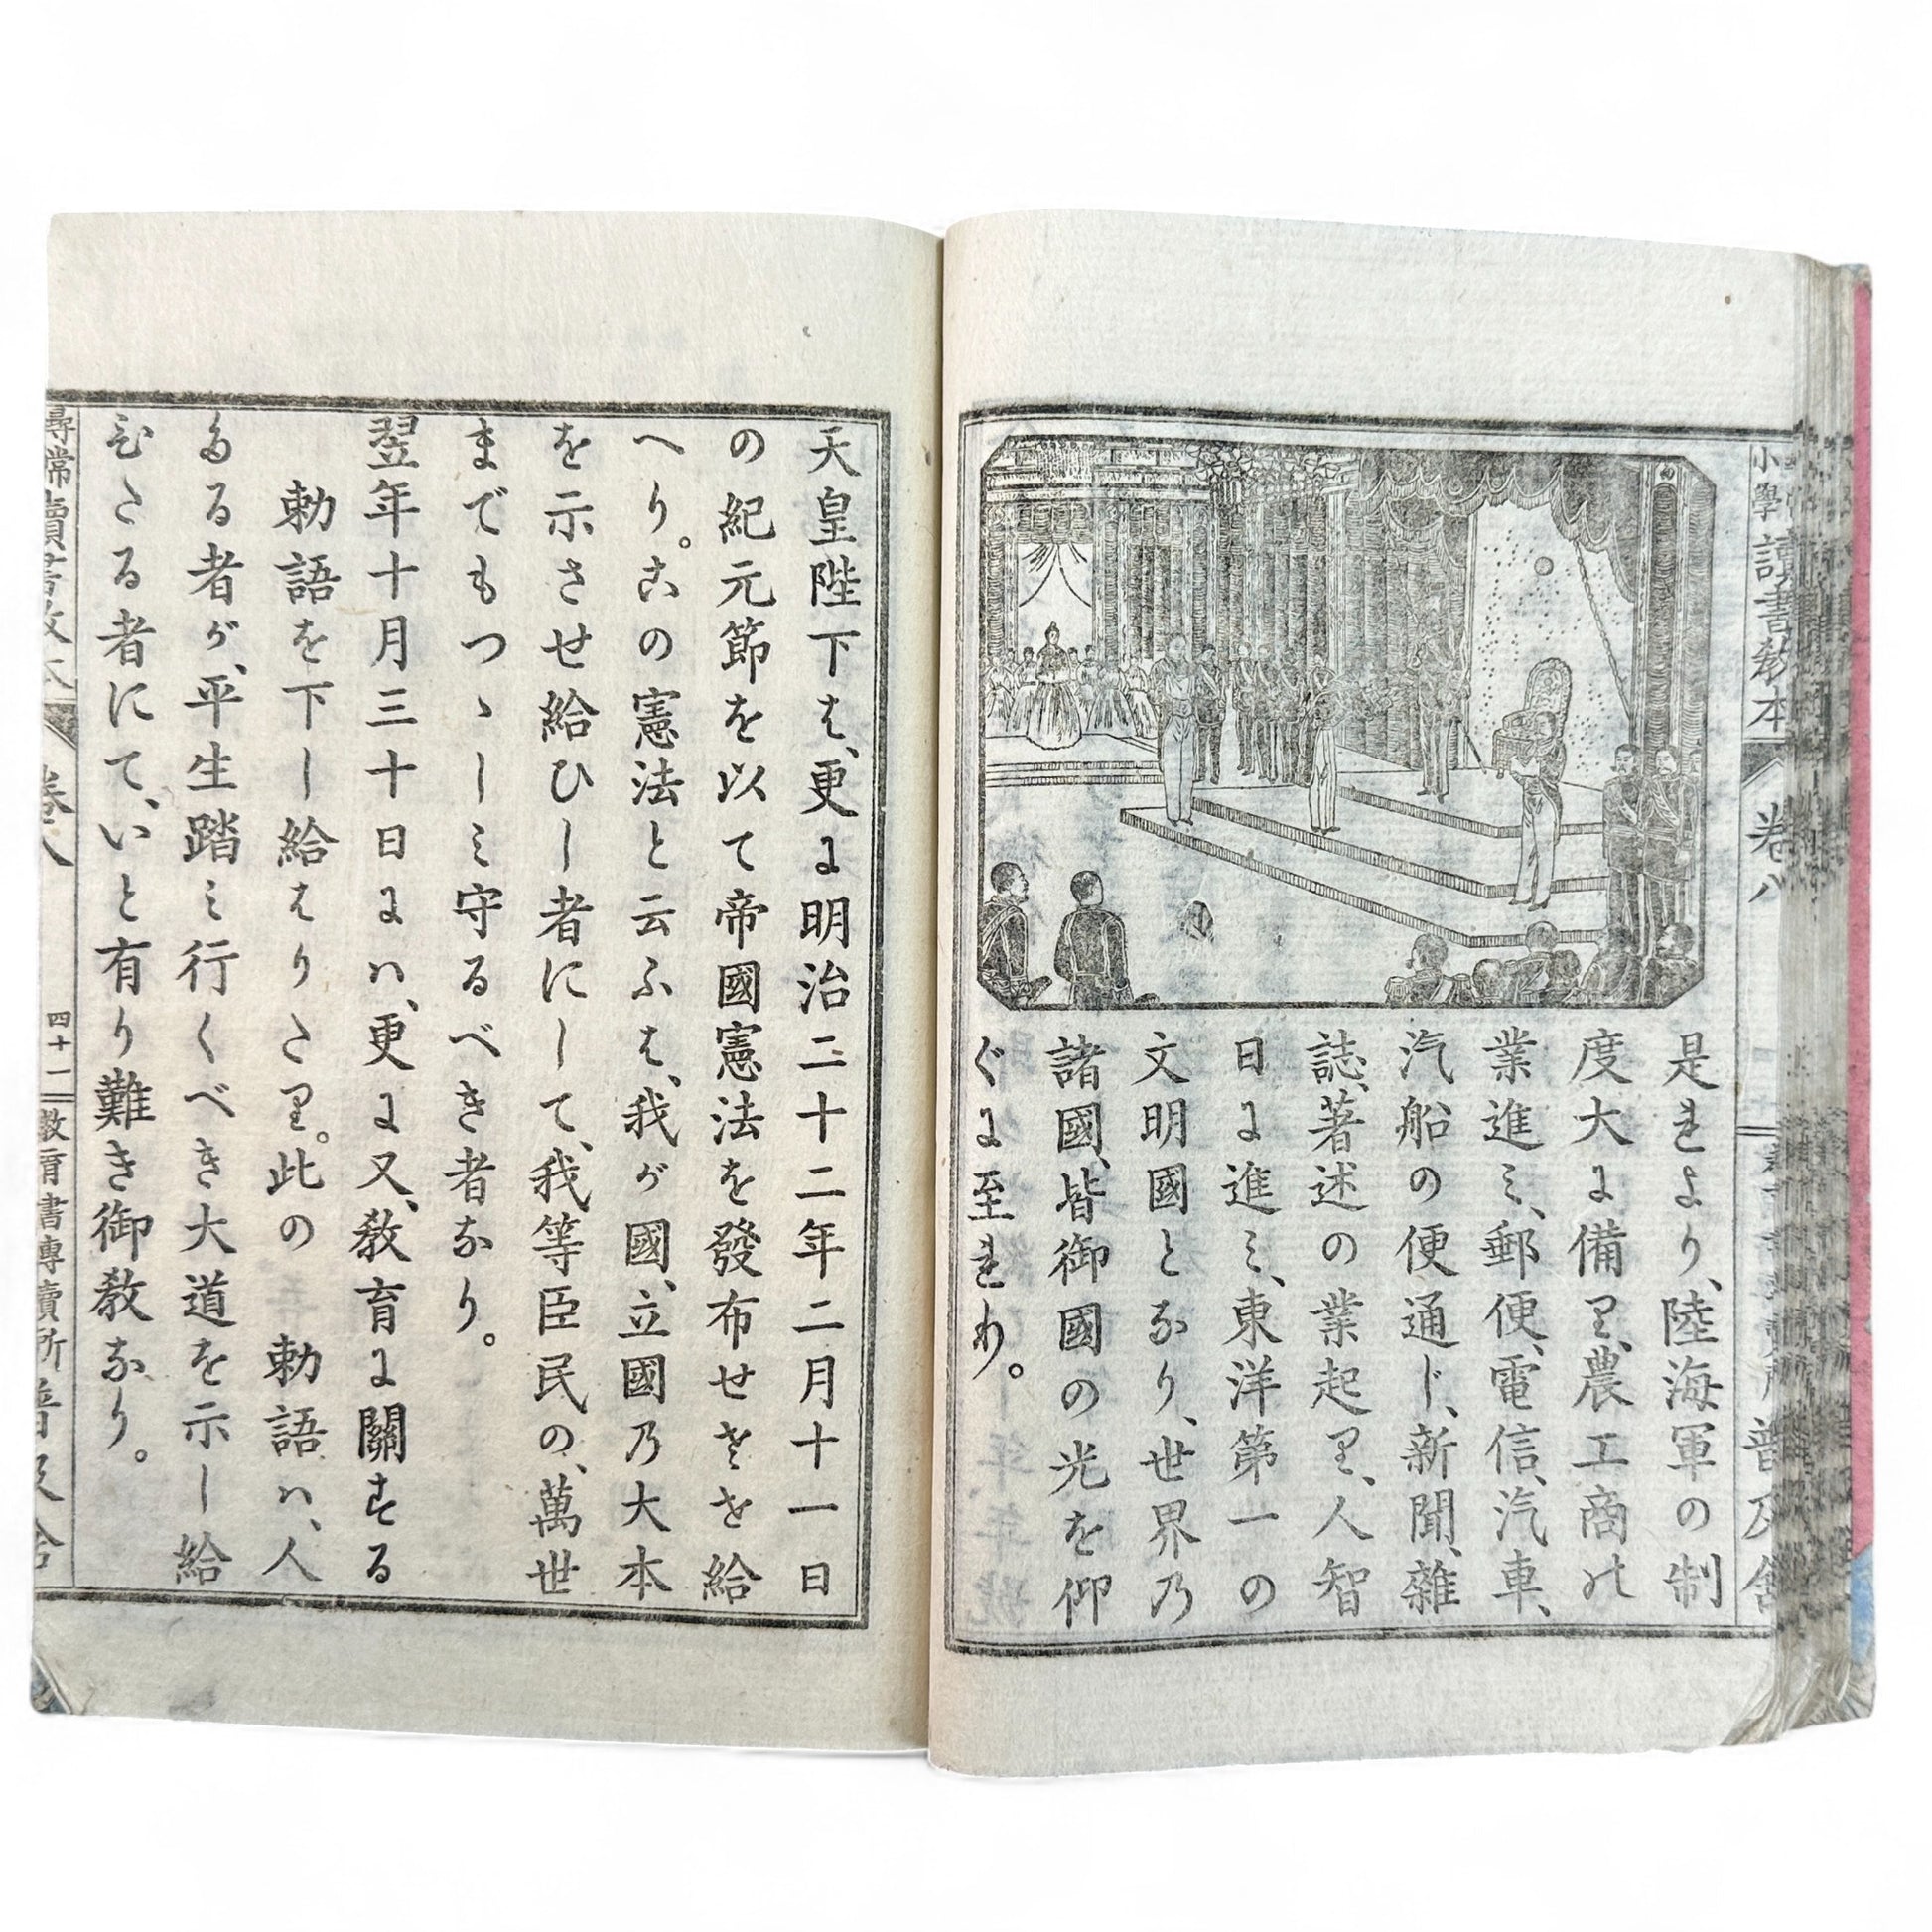 小學讀書教本 卷八 普及舍
是れより、陸海軍の制
度大に備り、農工商の
業進み、郵便、電信、汽車、
汽船の便通じ、新聞、雜
誌、著述の業起り、人智
日に進み、東洋第一の
文明國となり、世界乃
諸國、皆御國の光を仰
ぐに至れり。
天皇陛下は、更に明治二十二年二月十一日
の紀元節を以て帝國憲法を發布せさせ給
へり。この憲法と云ふは、我が國、立國乃大本
を示させ給ひし者にして、我等臣民の、萬世
までもつゝしみ守るべき者なり。
翌年十月三十日にハ、更に又、教育に關する
勅語を下し給はりたり。此の 勅語ハ、人
たる者が、平生踏み行くべき大道を示し給
ひたる者にて、いと有り難き御教なり。
尋常讀書教本 卷八 四十一 教育書專賣所 普及舍